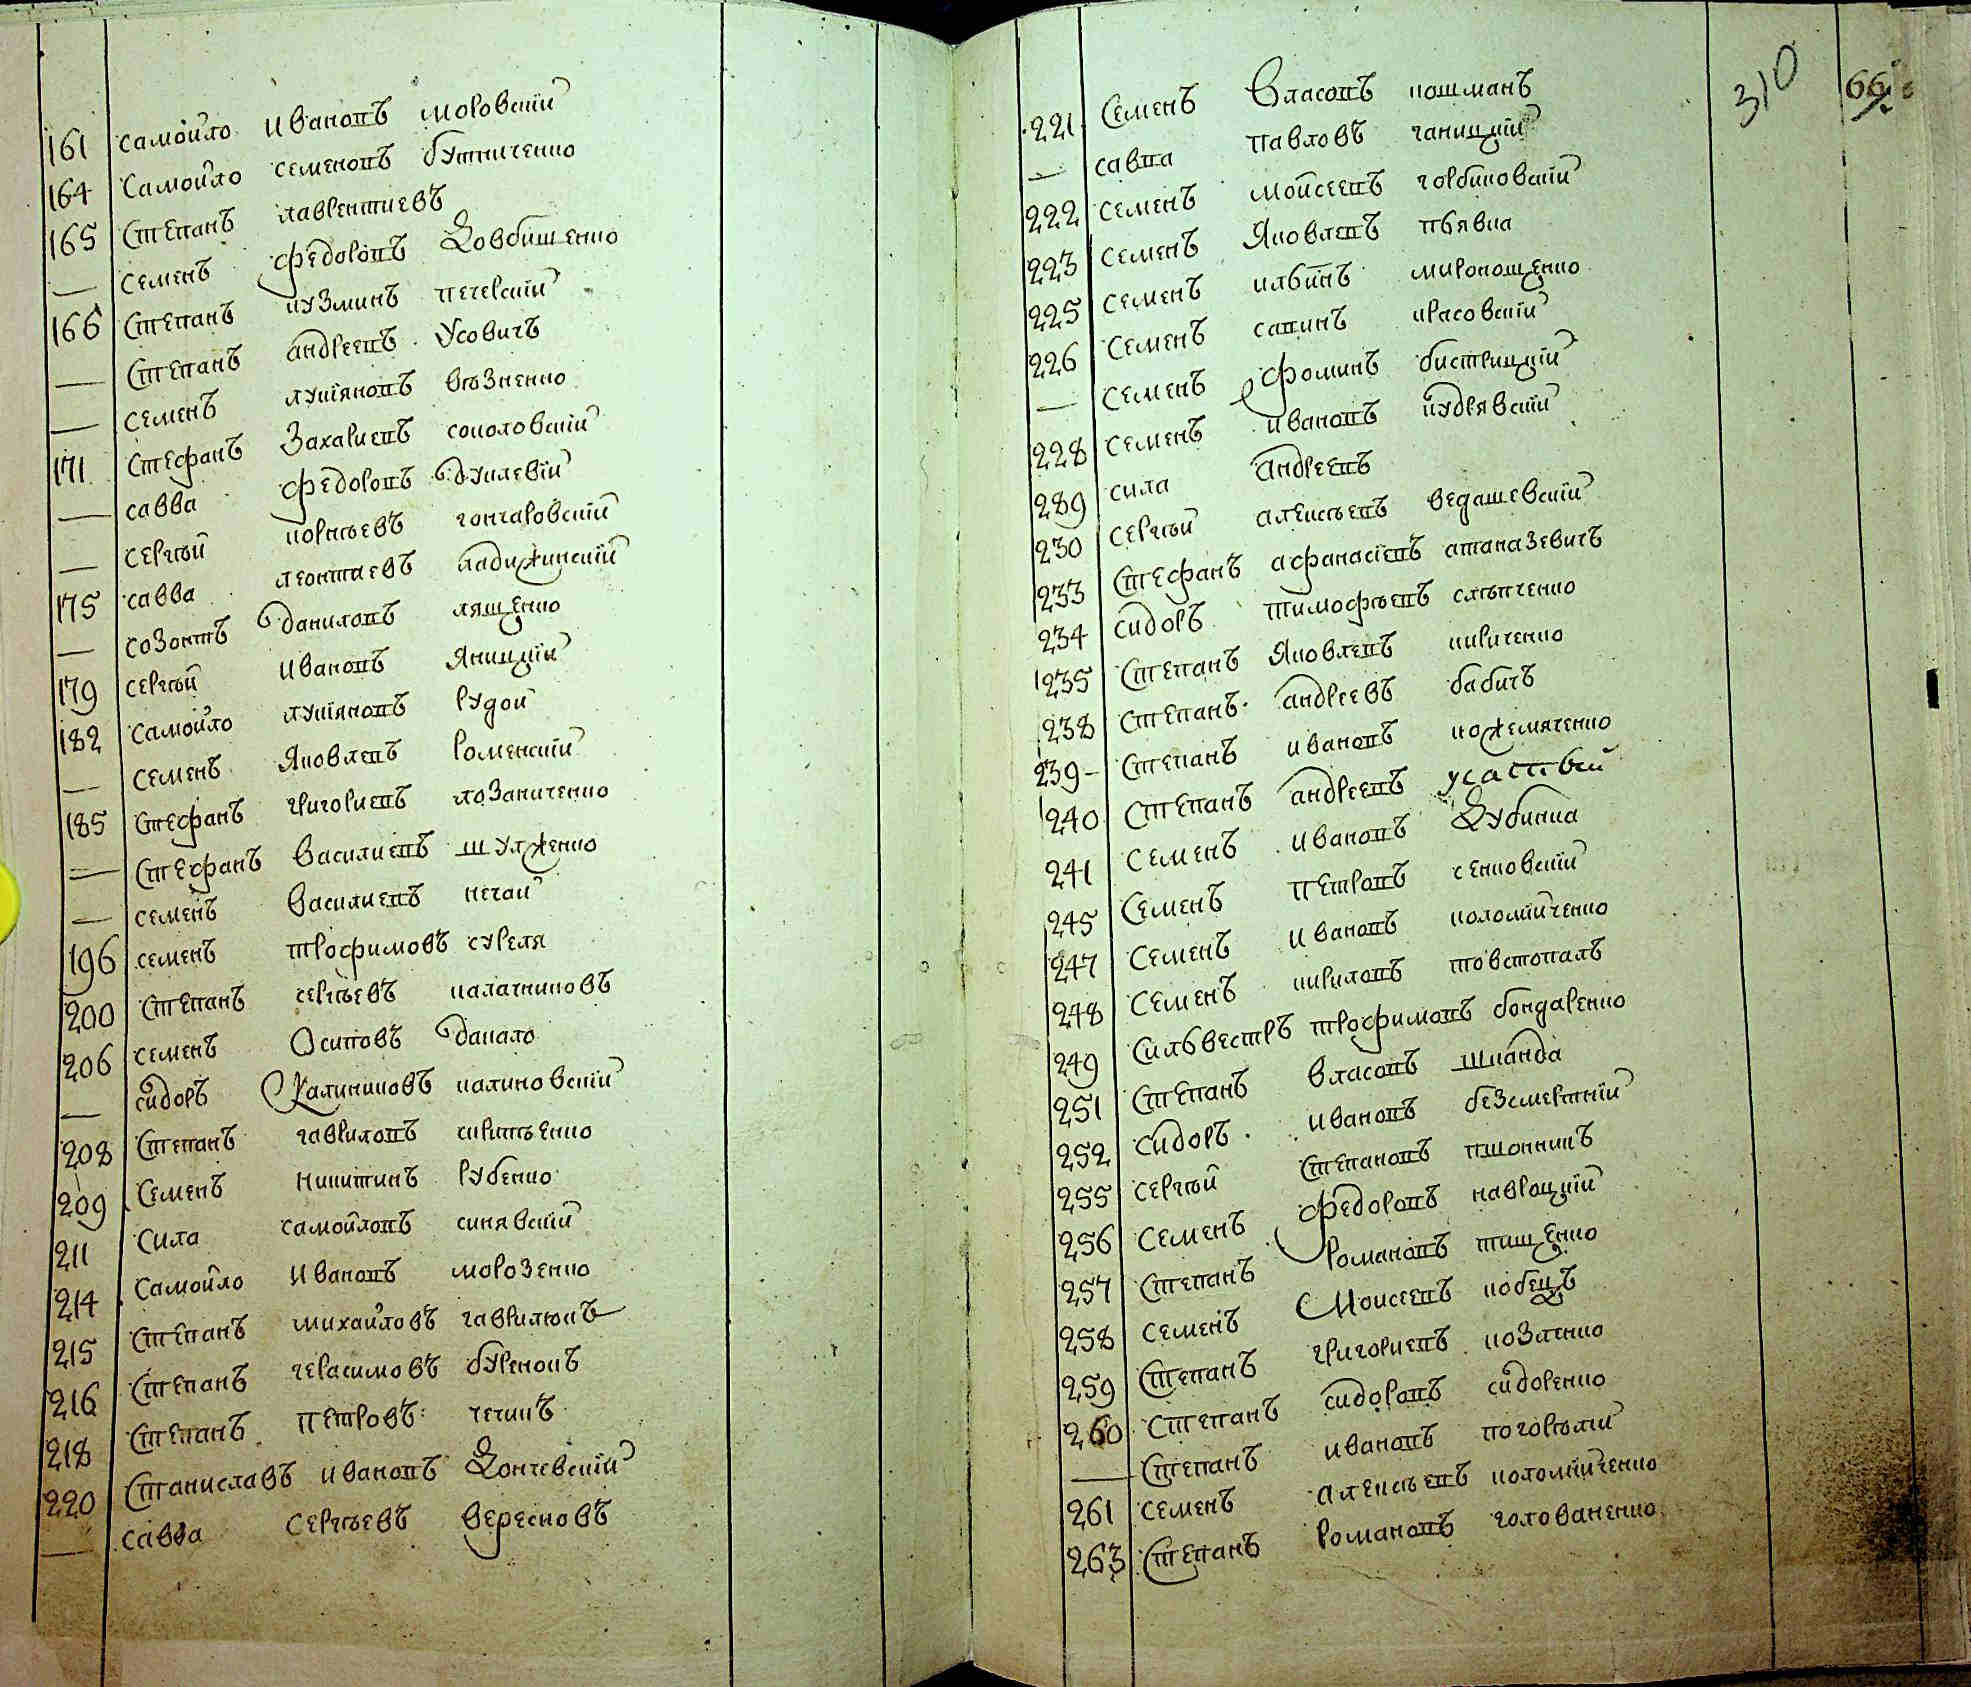 161 самойло Ивановъ моровский
164 Самойло семеновъ бутниченко
165 Степанъ лаврентиевъ
— семенъ федоровъ Довбишенко
166 Степанъ кузминъ печерский
— Степанъ андреевъ Усовичъ
— семенъ лукіяновъ возненко
171 Стефанъ Захариевъ соколовский
— савва федоровъ
— сергѣй корнѣевъ гончаровский
175 савва леонтиевъ ладижинский
— созонтъ даниловъ лященко
179 сергѣй Ивановъ Яницкий
182 самойло лукіяновъ рудой
— семенъ Яковлевъ роменский
185 Стефанъ григориевъ лозаниченко
— Стефанъ василиевъ шулженко
— семенъ василиевъ нечай
196 семенъ трофимовъ суреля
200 Степанъ сергѣевъ калачниковъ
206 семенъ Осиповъ
— сидоръ Калиниковъ калиновский
208 Степанъ гавриловъ
209 Семенъ никитинъ рубенко
211 Сила самойловъ синявский
214 Самойло Ивановъ морозенко
215 Степанъ михайловъ гаврилюкъ
216 Степанъ герасимовъ буренокъ
218 Степанъ петровъ чечикъ
220 Станиславъ ивановъ Дончевский
— савва Сергѣевъ вересковъ
310 66
221 Семенъ власовъ кошманъ
— савва павловъ ганицкий
222 семенъ мойсеевъ горбиковский
223 семенъ Яковлевъ пьявка
225 семенъ илбинъ мирокощенко
226 семенъ савинъ красовский
— семенъ фоминъ бистрицкий
228 семенъ ивановъ кудрявский
289 сила андреевъ
230 сергѣй алексѣевъ ведашевский
233 Стефанъ афанасіевъ атаназевичъ
234 сидоръ тимофѣевъ слѣпченко
235 Степанъ Яковлевъ кириченко
238 Степанъ андреевъ бабичъ
239 Степанъ ивановъ кожемяченко
240 Степанъ андреевъ усатьвй
241 семенъ ивановъ Дубинка
245 Семенъ петровъ сенковский
247 Семенъ ивановъ коломийченко
248 Семенъ кириловъ товстопалъ
249 Силвестръ трофимовъ бондаренко
251 Степанъ власовъ шканда
252 сидоръ ивановъ безсмертний
255 сергѣй степановъ пшонникъ
256 Семенъ федоровъ навроцкий
257 Степанъ романовъ тищенко
258 семенъ Моисеевъ кобецъ
259 Степанъ григориевъ козленко
260 Степанъ сидоровъ сидоренко
— Степанъ ивановъ погорѣлий
261 семенъ алексѣевъ коломийченко
263 Степанъ романовъ голованенко